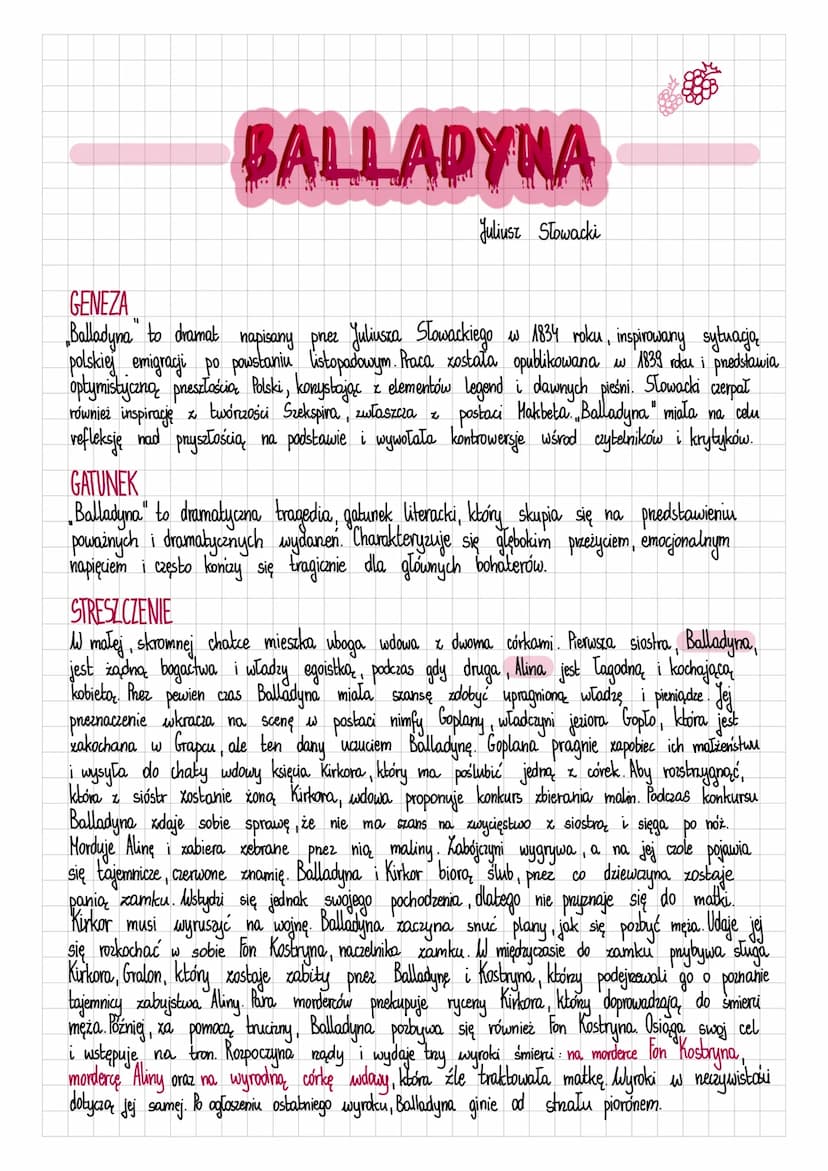 BALLADYNA
Juliusz Słowacki
GENEZA
„Balladyna" to dramat napisany przez Juliusza Słowackiego w 1834 roku, inspirowany sytuacją
polskiej emigracji po powstaniu listopadowym. Praca została opublikowana w 1839 roku i przedstawia
optymistyczną przeszłością Polski, korzystając z elementów legend i dawnych pieśni. Słowacki czerpał
również inspirację z twórzości Szekspira, zwłaszcza z postaci Makbeta. „Balladyna" miała na celu
refleksję nad przyszłością na podstawie i wywołała kontrowersje wśrod czytelników i krytyków.
GATUNEK
„Balladyna" to dramatyczna tragedia, gatunek literacki, który skupia się na przedstawieniu
poważnych i dramatycznych wydarzeń. Charakteryzuje się głębokim przeżyciem, emocjonalnym
napięciem i często kończy się tragicznie dla głównych bohaterów.
STRESZCZENIE
W małej, skromnej chatce mieszka uboga wdowa z dwoma córkami. Pierwsza siostra, Balladyna,
jest żądną bogactwa i władzy egoistką, podczas gdy druga, Alina jest łagodną i kochającą
kobietą. Przez pewien czas Balladyna miała szansę zdobyć upragnioną władzę i pieniądze. Jej
przeznaczenie wkracza na scenę w postaci nimfy Goplany, władczyni jeziora Gopło, która jest
zakochana w Grapcu, ale ten dany uczuciem Balladynę. Goplana pragnie zapobiec ich małżeństwu
i wysyła do chaty wdowy księcia Kirkora, który ma poślubić jedną z córek. Aby rozstrzygnąć,
która z sióstr zostanie żoną Kirkora, wdowa proponuje konkurs zbierania malin. Podczas konkursu
Balladyna zdaje sobie sprawę, że nie ma szans na zwycięstwo z siostrą i sięga po nóż.
Morduje Alinę i zabiera zebrane przez nią maliny. Zabójczyni wygrywa, a na jej czole pojawia
się tajemnicze, czerwone znamię. Balladyna i Kirkor biorą ślub, przez co dziewczyna zostaje
panią zamku. Wstydzi się jednak swojego pochodzenia, dlatego nie przyznaje się do matki.
Kirkor musi wyruszyć na wojnę. Balladyna zaczyna snuć plany, jak się pozbyć męża. Udaje jej
się rozkochać w sobie Fon Kostryna, naczelnika zamku. W międzyczasie do zamku przybywa sługa
Kirkora, Gralon, który zostaje zabity przez Balladynę i Kostryna, którzy podejrzewali go o poznanie
tajemnicy zabujstwa Aliny. Para morderców przekupuje rycerzy Kirkora, który doprowadzają do śmierci
męża. Później, za pomocą trucizny, Balladyna pozbywa się również Fon Kostryna. Osiąga swój cel
i wstępuje na tron. Rozpoczyna rządy i wydaje trzy wyroki śmierci: na morderce Fon Kostryna,
mordercę Aliny oraz na wyrodną córkę wdowy, która źle traktowała matkę. Wyroki w rzeczywistości
dotyczą jej samej. Po ogłoszeniu ostatniego wyroku, Balladyna ginie od strzału piorónem.